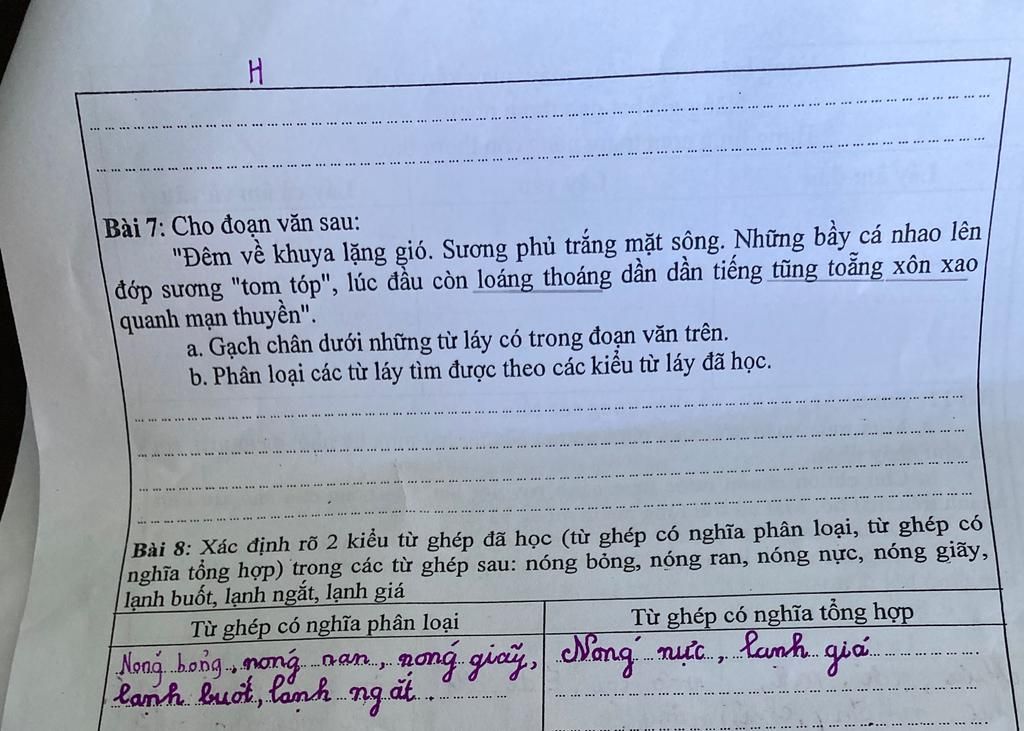 H
Bài 7: Cho đoạn văn sau:
"Đêm về khuya lặng gió. Sương phủ trắng mặt sông. Những bầy cá nhao lên
đớp sương "tom tóp", lúc đầu còn loáng thoáng dần dần tiếng tũng toẵng xôn xao
quanh mạn thuyền".
a. Gạch chân dưới những từ láy có trong đoạn văn trên.
b. Phân loại các từ láy tìm được theo các kiểu từ láy đã học.
Bài 8: Xác định rõ 2 kiểu từ ghép đã học (từ ghép có nghĩa phân loại, từ ghép có
nghĩa tổng hợp) trong các từ ghép sau: nóng bỏng, nóng ran, nóng nực, nóng giãy,
lạnh buốt, lạnh ngắt, lạnh giá
Từ ghép có nghĩa phân loại
Từ ghép có nghĩa tổng hợp
Nóng bỏng, nóng ran, nóng giãy,
lạnh buốt, lạnh ngắt
Nóng nực, lạnh giá